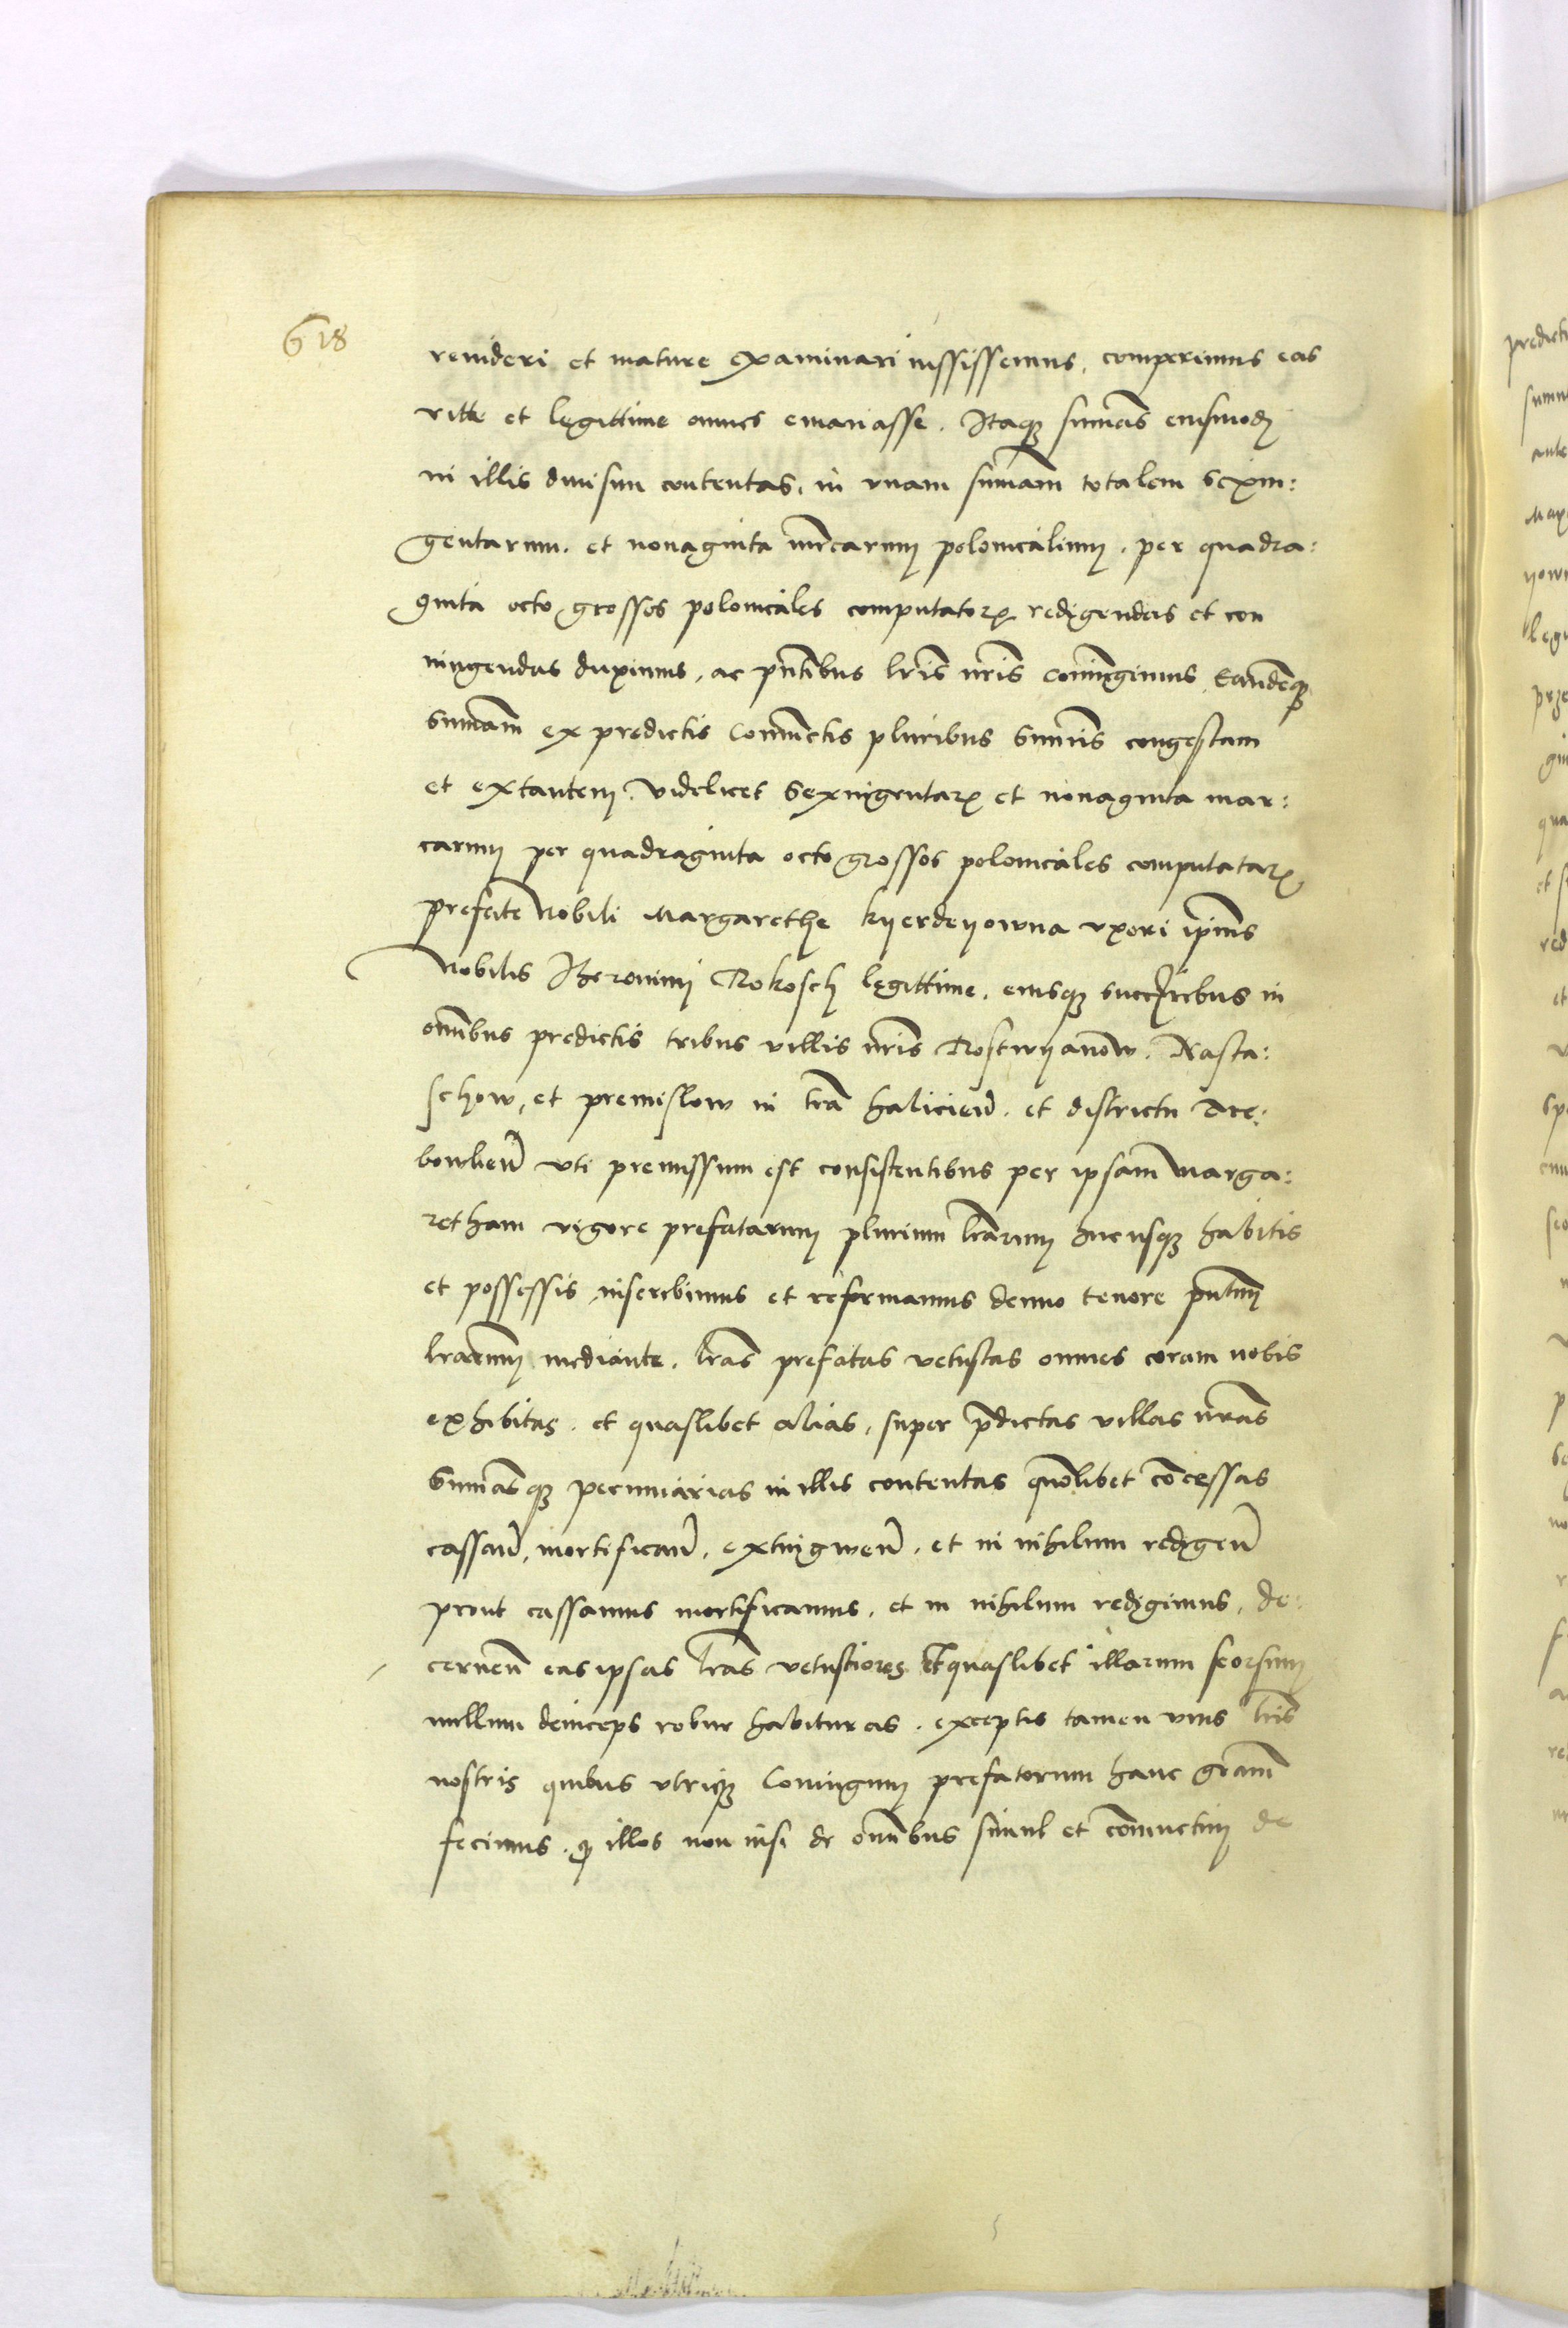 618
revideri et mature examinari iussissemus, comperimus eas
ritte et legittime omnes emanasse. Itaq3 sum̄as eiusmodi
in illis divisim contentas, in vnam sum̄am totalem sexin:
gentarum. et nonaginta mrcarum polonicalium. per quadra:
ginta octo grossos polonicales computatorꝝ redigendas et con
iungendas duximus, ac pn̄tibus lr̄is nr̄is coniungimus, Eandēq3
Sum̄am ex predictis coniunctis pluribus Sum̄is congestam
et extantem. videlicet Sexingentarꝝ et nonaginta mar:
carum per quadraginta octo grossos polonicales computatarꝝ
prefate Nobili Margarethe kyerdeyowna vxori ip̄ius
Nobilis Iheronimi Rokosch legittime. eiusq3 successoribus in
om̄ibus predictis tribus villis nr̄is Rostwyanow. Nasta:
schow, et premislow in tr̄a halicien̄. et districtu Tre:
bowlien̄ vti premissum est consistentibus per ipsam Marga:
retham vigore prefatarum plurium lr̄arum hucusq3 habitis
et possessis inscribimus et reformamus denuo tenore pn̄tium
lr̄arum mediante. lr̄as prefatas vetustas omnes coram nobis
exhibitas. et quaslibet alias, super p̄dictas villas nr̄as
Sum̄asq3 pecuniarias in illis contentas quōlibet cōcessas
cassan̄, mortifican̄. extingwen̄. et in nihilum redigen̄
prout cassamus mortificamus, et in nihilum redigimus, de:
cernen̄ eas ipsas lr̄as vetustiores et quaslibet illarum seorsum
nullum deinceps robur habituras. exceptis tamen vnis lr̄is
nostris quibus vtriq3 Coniugum prefatorum hanc gr̄am
fecimus. q illos non nisi de om̄ibus simul et coniunctim de